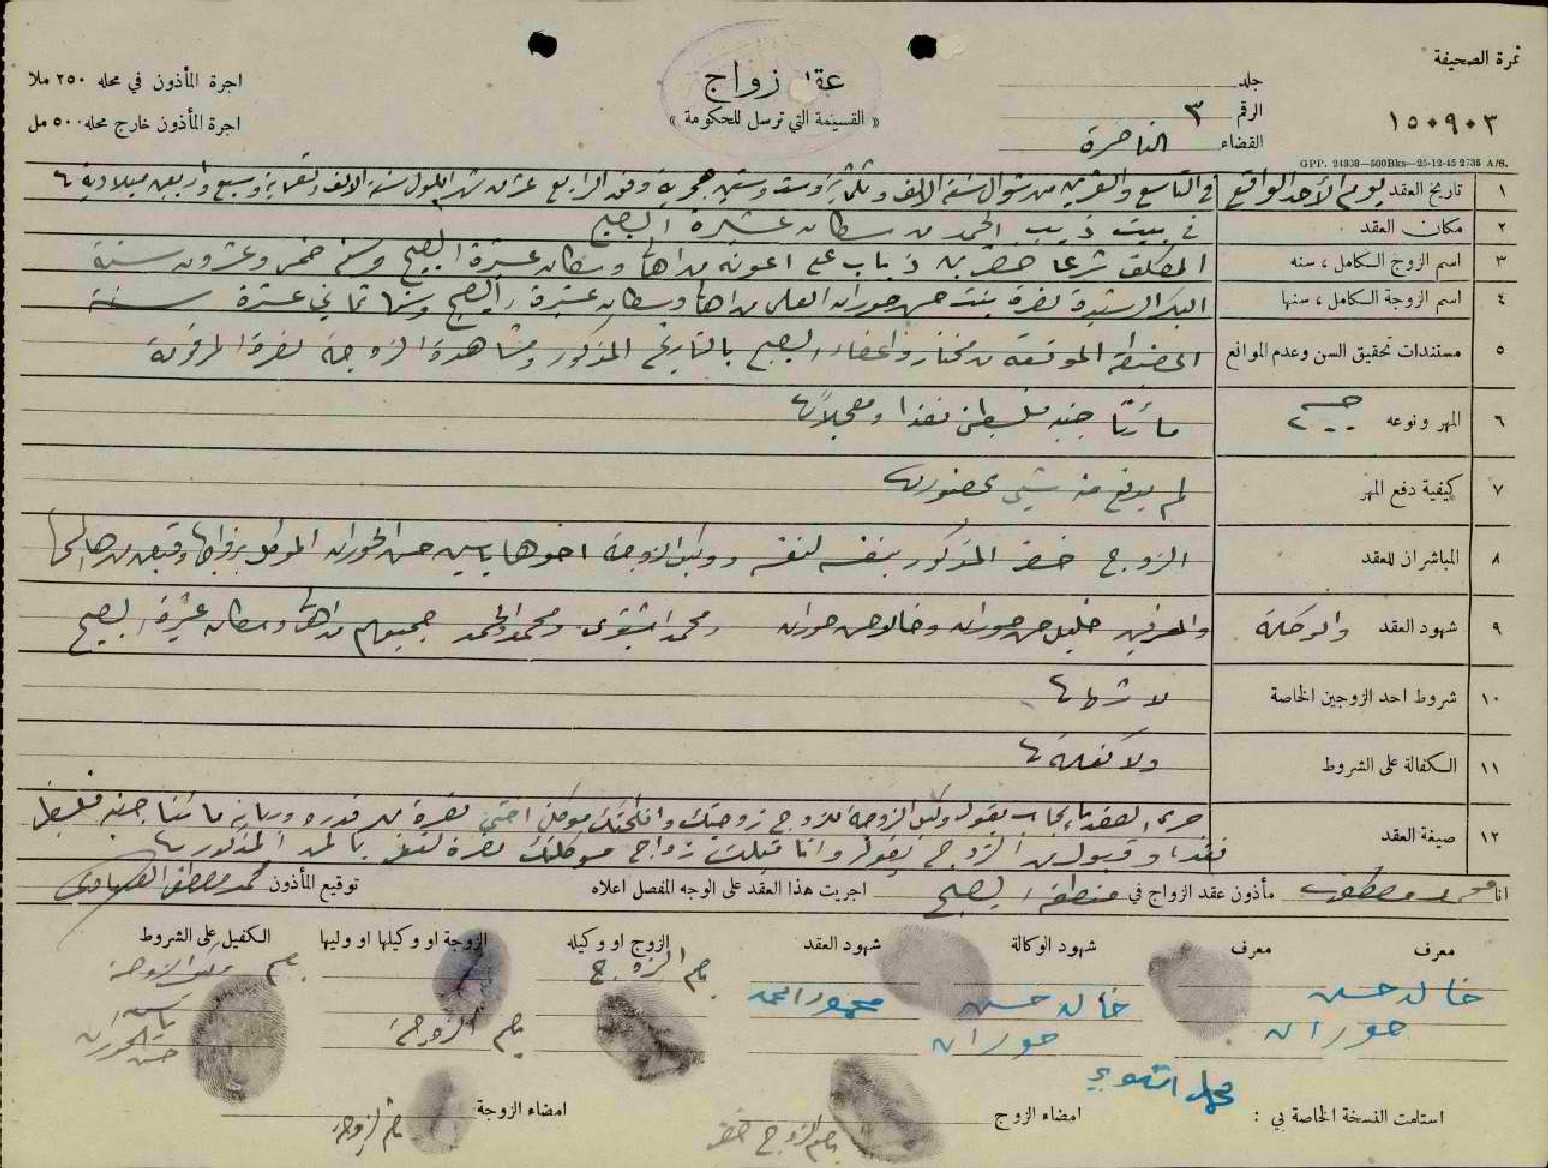 نمرة الصحيفة
١٥٠٩٠٣
جلد
الرقم ٣
القضاء الناصرة
عقد زواج
« القسيمة التي ترسل للحكومة »
اجرة المأذون في محله ٢٥٠ ملا
اجرة المأذون خارج محله ٥٠٠ مل
GPP. 24939—500Bks—25-12-45 2735 A/S.
١ تاريخ العقد يوم الأحد الواقع في التاسع والعشرين من شوال سنة الالف وثلثماية وست وستين هجرية وفق الرابع عشر من شهر ايلول سنة الالف وتسعماية وسبع واربعين ميلادية
٢ مكان العقد في بيت ذيب الحمد من سكان عشيرة الصبيح
٣ اسم الزوج الكامل ، سنه المكلف شرعا خضر بن ذياب علي من اهالي وسكان عشيرة الصبيح وسنه خمس وعشرون سنة
٤ اسم الزوجة الكامل ، سنها البكر الرشيدة نصرة بنت حسن حوران العلي من اهالي وسكان عشيرة الصبيح وسنها ثماني عشرة سنة
٥ مستندات تحقيق السن وعدم الموانع المضبطة الموقعة من مختار واعضاء الصبيح بالتاريخ المذكور ومشاهدة الزوجة نصرة المرقومة
٦ المهر ونوعه ٢٠٠ مائتا جنيه فلسطيني نقدا ومعجلا
٧ كيفية دفع المهر لم يدفع منه شيء بحضوري
٨ المباشران للعقد الزوج خضر المذكور بنفسه لنفسه ووكيل الزوجة اخوها ياسين حسن الحوران الموكل بزواجها وقبض مهرها
٩ شهود العقد والوكالة والمعرفين خليل حسن حوران وخالد حسن حوران ومحمد الشتيوي ومحمود الحمد جميعهم من اهالي وسكان عشيرة الصبيح
١٠ شروط احد الزوجين الخاصة لا شرط
١١ الكفالة على الشروط ولا كفالة
١٢ صيغة العقد جرى العقد بايجاب بقول وكيل الزوجة للزوج زوجتك وانكحتك موكلتي اختي نصرة بمهر قدره وبيانه مائتا جنيه فلسطيني
نقدا وقبول من الزوج بقوله وانا قبلت زواج موكلتك نصرة لنفسي بالمهر المذكور
انا محمد مصطفى مأذون عقد الزواج في منطقة الصبيح اجريت هذا العقد على الوجه المفصل اعلاه توقيع المأذون محمد مصطفى
معرف معرف شهود الوكالة شهود العقد الزوج او وكيله الزوجة او وكيلها او وليها الكفيل على الشروط
خالد حسن خالد حسن محمود الحمد بصم الزوج بصم وكيل الزوجة
حوران حوران بصم الزوجة ياسين
حسن الحوران
محمد اشتيوي
استلمت النسخة الخاصة بي : امضاء الزوج بصم الزوج خضر امضاء الزوجة بصم الزوجة